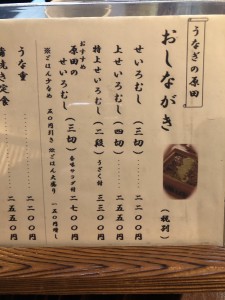 うなぎの原田
おしながき
(税別)
せいろむし(三切)……二二〇〇円
上せいろむし(四切)……二五五〇円
特上せいろむし(二段)うざく付 三三〇〇円
おすすめ
原田のせいろむし(三切)二七〇〇円
※ごはん少なめ 五〇円引き ※ごはん大盛り 一五〇円増し
うな重……二二〇〇円
定食……二五五〇円